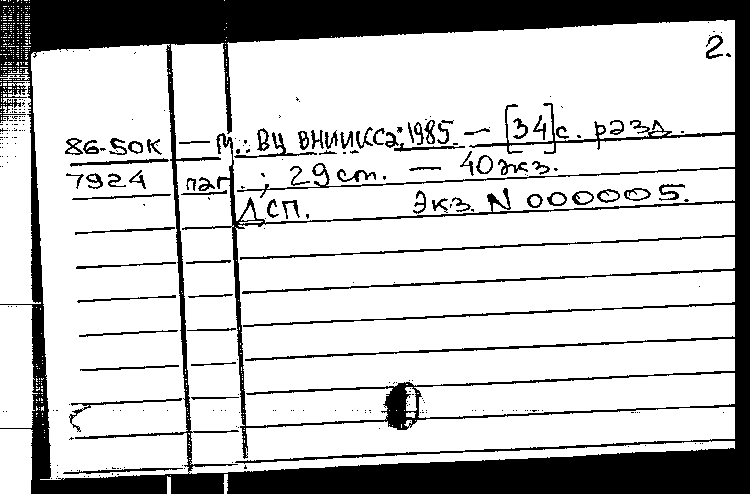 2.
86-50К — М.: ВЦ ВНИИКСа; 1985 — [34]с. разд.
7924 паг.; 29 см. — 40 экз.
ДСП. Экз. N 000005.